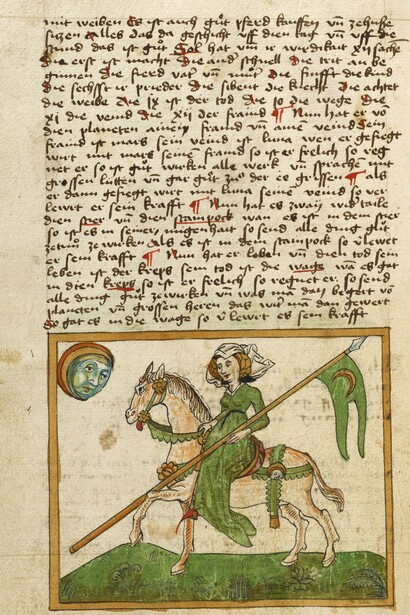 mit weiben Es ist auch gůt pferd kauffen vñ zehuße
sitzen Alles das da geschicht vff dien tag vñ vff die
stund das ist gůt Sol hat vm ir wirdikait xij sache
Die erst ist macht Die and schnell die trit an be
ginnen die fierd vat vñ můt Die fünfft die kind
die sechsst ir prieder Die sibent die knecht Die achtet
die weibe Die ix ist der tod Die jo die wege die
xi die veind Die xij der fraind ¶ Nun hat er vō
dien planeten ainen fraind vñ aine veind Sein
fraind ist mars sein veind ist luna wen er gefiegt
wirt mit mars seine fraind so ist er frelich so reg
net er so ist gůt wurken alle werk vñ sprache mit
grossen lutten vñ gar gůt zů der es grissen ¶ als
er dann gefiegt wirt mit luna seine veind so ver
lewrt er sein krafft ¶ Nun hat es zwaij wirtaile
dien stier vñ dien stainpock wan es ist in dem stier
so ist es in seiner mügenhait so send alle ding gůt
zetuͦ zewirken als es ist in dem stainpock so vˀlewt
er sein krafft ¶ Nun hat er leben vñ dien tod sein
leben ist der kreps sein tod ist die wage wā es gat
in dien kreps so ist er frelich so regnet er so send
alle ding gůt zewurken vñ was mā daz begert vō
planeten vñ grossen heren das wirt mā dan gewert
So gat es in die wage so vˀlewrt es sein krafft